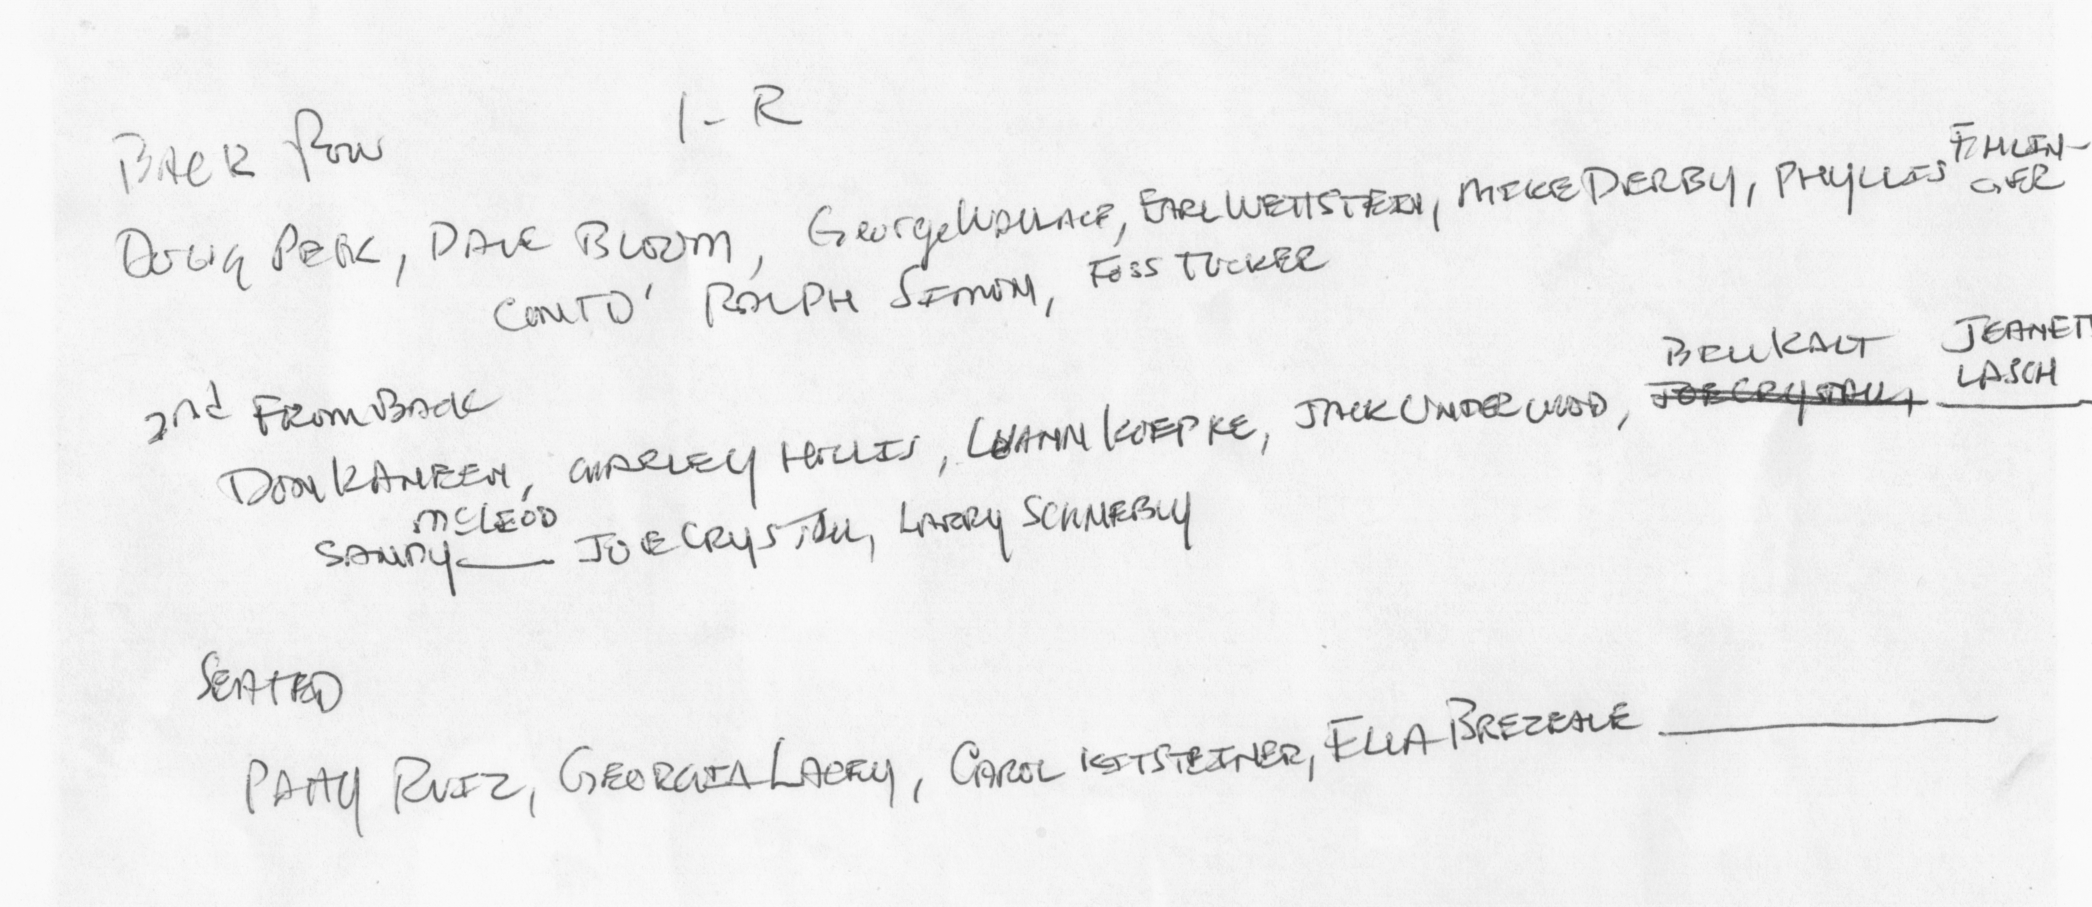 Back Row L-R
Doug Peck, Dave Bloom, George Wallace, Earl Wettstein, Mike Derby, Phyllis Ehlin-
ger
Cont'd Ralph Simon, Foss Tucker
2nd From Back
Don Kaneen, Charley Hollis, Luann Koepke, Jack Underwood, Bell Kalt Joe Crystall, Jeanett Lasch
Sandy McLeod Joe Crystall, Larry Schnebly
Seated
Patty Ruiz, Georgia Lacey, Carol Kitsteiner, Ella Brezeale